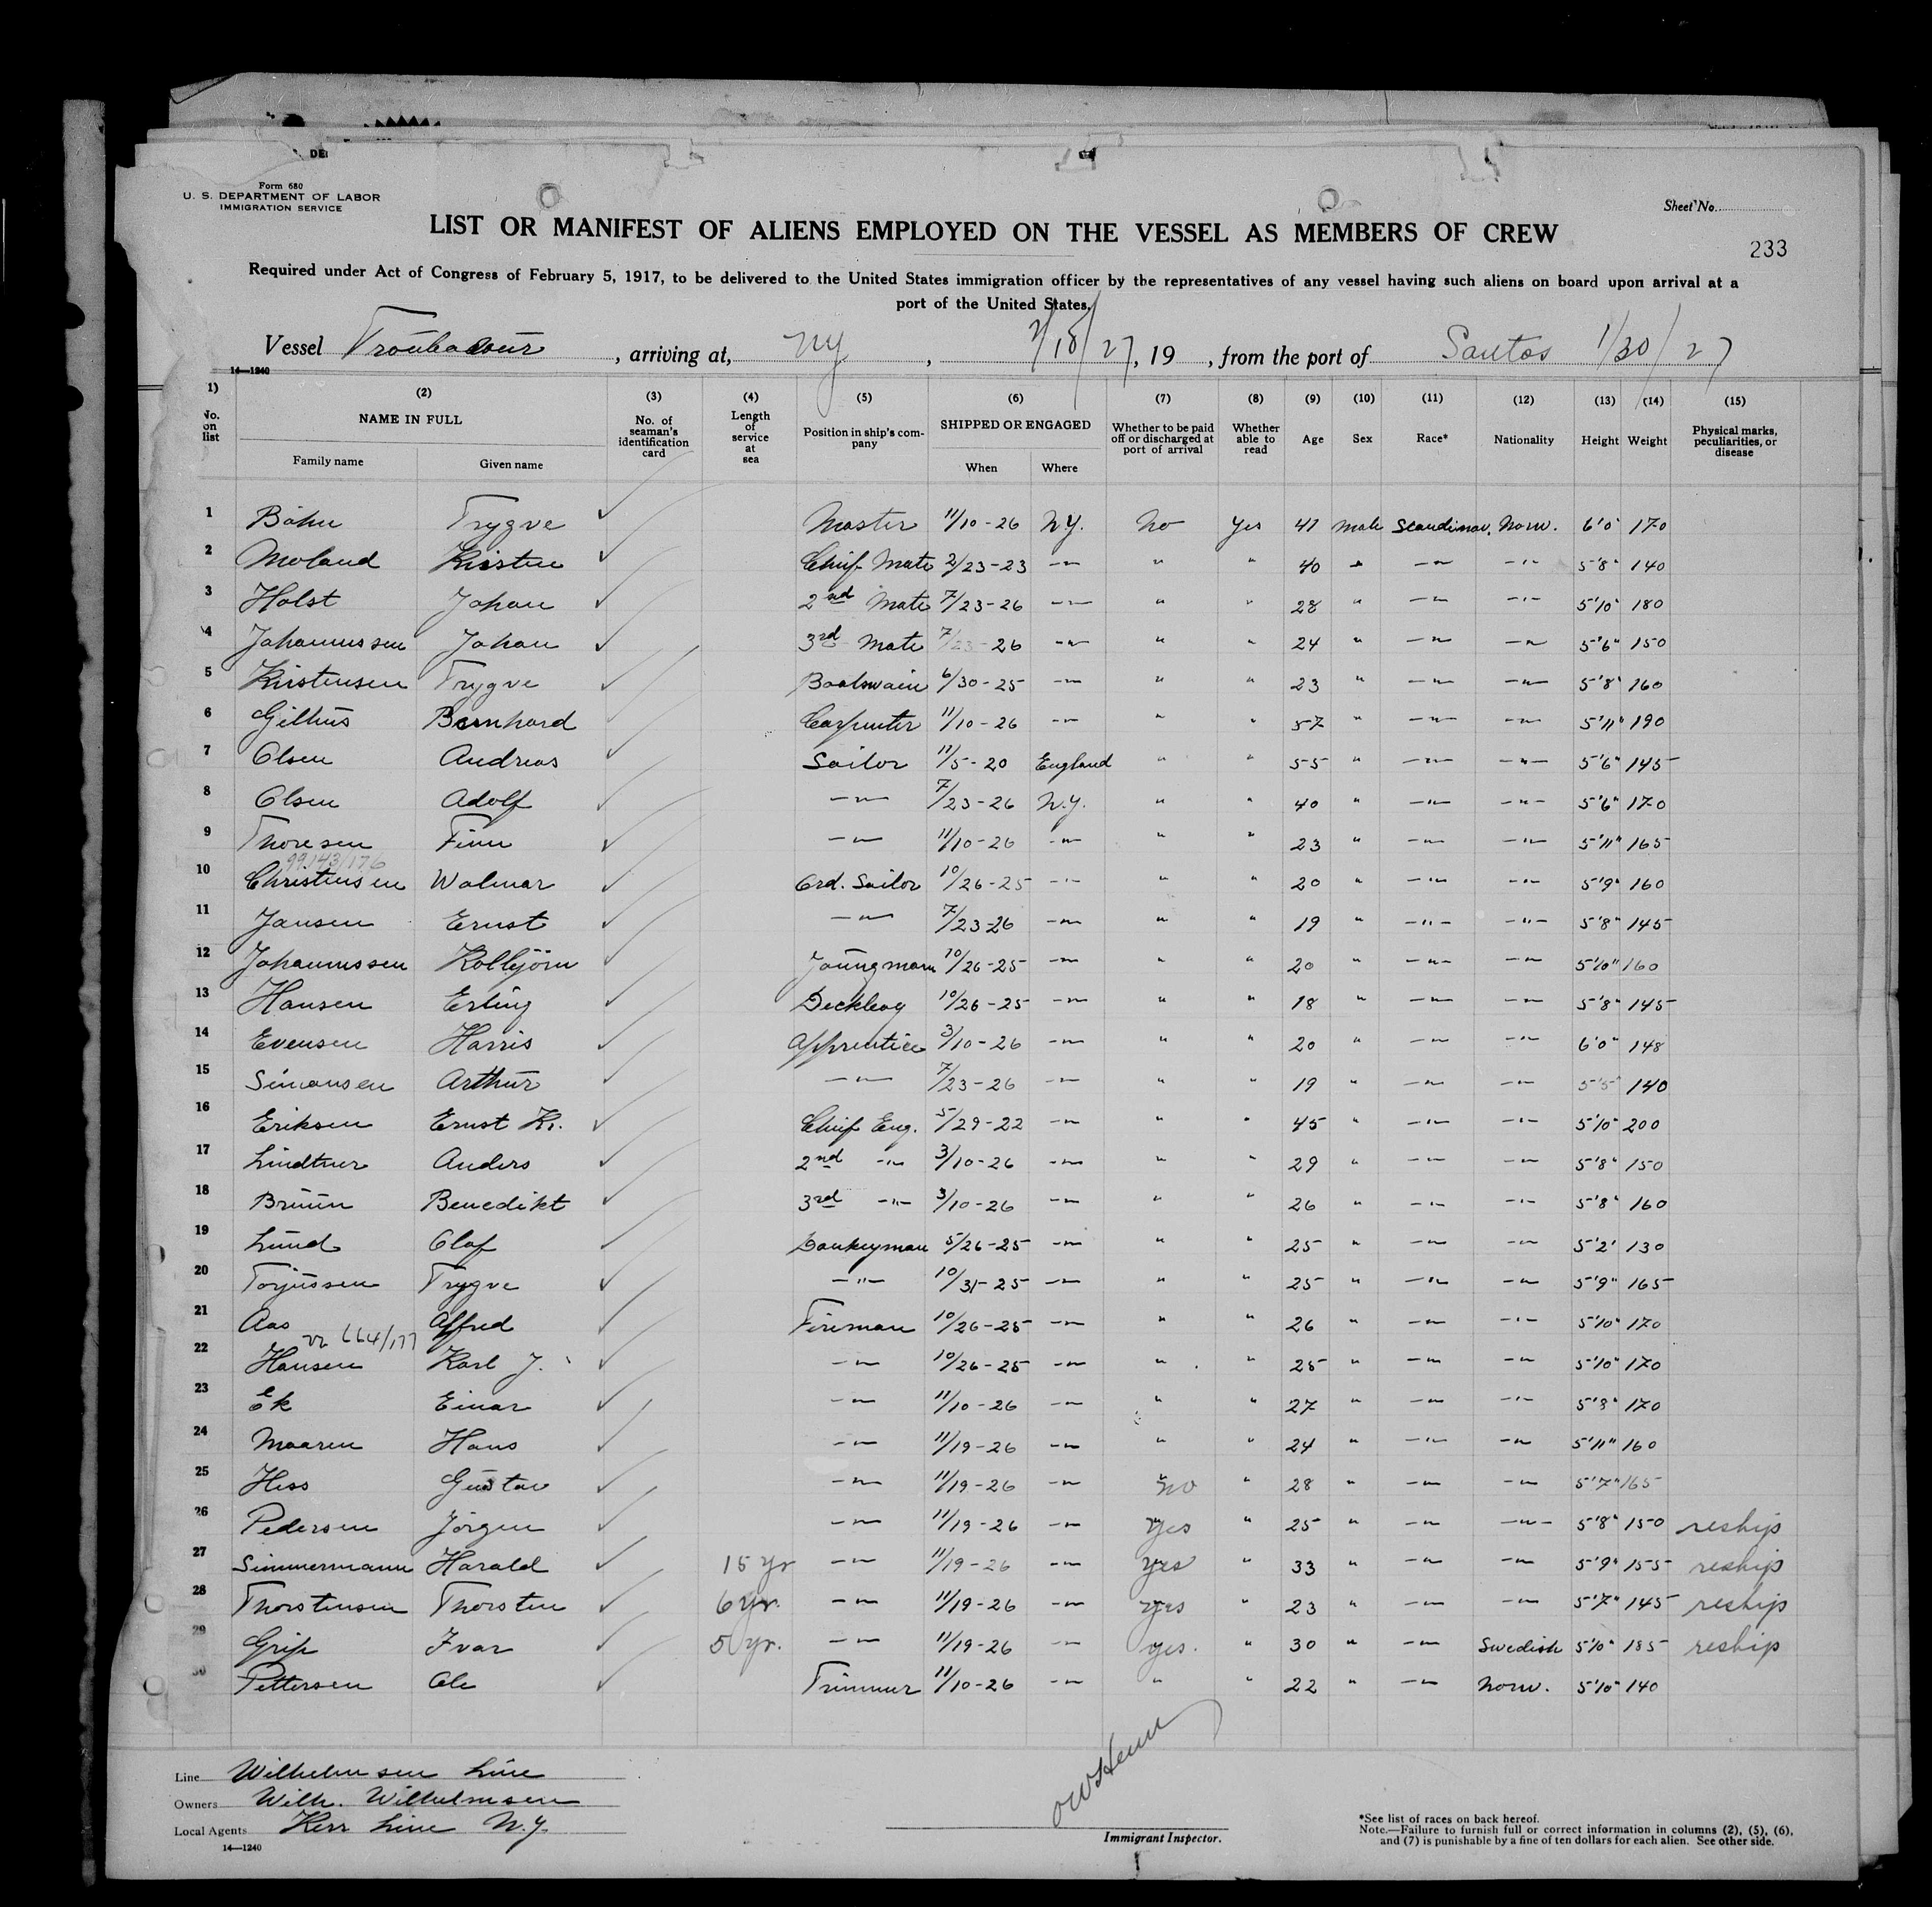 Form 680
U. S. DEPARTMENT OF LABOR
IMMIGRATION SERVICE
Sheet No.
LIST OR MANIFEST OF ALIENS EMPLOYED ON THE VESSEL AS MEMBERS OF CREW
233
Required under Act of Congress of February 5, 1917, to be delivered to the United States immigration officer by the representatives of any vessel having such aliens on board upon arrival at a
port of the United States.
Vessel Troubadour, arriving at, NY, 2/18/27, 19 , from the port of Santos 1/30/27
14—1240
(1) (2) (3) (4) (5) (6) (7) (8) (9) (10) (11) (12) (13) (14) (15)
No. on list NAME IN FULL Family name Given name No. of seaman's identification card Length of service at sea Position in ship's company SHIPPED OR ENGAGED When Where Whether to be paid off or discharged at port of arrival Whether able to read Age Sex Race* Nationality Height Weight Physical marks, peculiarities, or disease
1 Böhn Trygve ✓ Master 11/10-26 N.Y. No Yes 41 Male Scandinav. Norw. 6'0" 170
2 Moland Kristen ✓ Chief Mate 2/23-23 —"— " " 40 " —"— —"— 5'8" 140
3 Holst Johan ✓ 2nd Mate 7/23-26 —"— " " 28 " —"— —"— 5'10" 180
4 Johannssen Johan ✓ 3rd Mate 7/23-26 —"— " " 24 " —"— —"— 5'6" 150
5 Kirstensen Trygve ✓ Boatswain 6/30-25 —"— " " 23 " —"— —"— 5'8" 160
6 Gilhus Bernhard ✓ Carpenter 11/10-26 —"— " " 57 " —"— —"— 5'11" 190
7 Olsen Andreas ✓ Sailor 11/5-20 England " " 55 " —"— —"— 5'6" 145
8 Olsen Adolf ✓ —"— 7/23-26 N.Y. " " 40 " —"— —"— 5'6" 170
9 Thoresen Finn ✓ —"— 11/10-26 —"— " " 23 " —"— —"— 5'11" 165
99143/176
10 Christensen Walmar ✓ Ord. Sailor 10/26-25 —"— " " 20 " —"— —"— 5'9" 160
11 Jansen Ernst ✓ —"— 7/23-26 —"— " " 19 " —"— —"— 5'8" 145
12 Johannssen Kolbjörn ✓ Joungmann 10/26-25 —"— " " 20 " —"— —"— 5'10" 160
13 Hansen Erling ✓ Deckboy 10/26-25 —"— " " 18 " —"— —"— 5'8" 145
14 Evensen Harris ✓ Apprentice 3/10-26 —"— " " 20 " —"— —"— 6'0" 148
15 Simonsen Arthur ✓ —"— 7/23-26 —"— " " 19 " —"— —"— 5'5" 140
16 Eriksen Ernst Kr. ✓ Chief Eng. 5/29-22 —"— " " 45 " —"— —"— 5'10" 200
17 Lindtner Anders ✓ 2nd —"— 3/10-26 —"— " " 29 " —"— —"— 5'8" 150
18 Bruun Benedikt ✓ 3rd —"— 3/10-26 —"— " " 26 " —"— —"— 5'8" 160
19 Lund Olaf ✓ Donkeyman 5/26-25 —"— " " 25 " —"— —"— 5'2" 130
20 Torjussen Trygve ✓ —"— 10/31-25 —"— " " 25 " —"— —"— 5'9" 165
21 Aas Alfred ✓ Fireman 10/26-25 —"— " " 26 " —"— —"— 5'10" 170
664/177
22 Hansen Karl J. ✓ —"— 10/26-25 —"— " " 25 " —"— —"— 5'10" 170
23 Ek Einar ✓ —"— 11/10-26 —"— " " 27 " —"— —"— 5'8" 170
24 Maaren Hans ✓ —"— 11/19-26 —"— " " 24 " —"— —"— 5'11" 160
25 Hess Gustav ✓ —"— 11/19-26 —"— no " 28 " —"— —"— 5'7" 165
26 Pedersen Jörgen ✓ —"— 11/19-26 —"— yes " 25 " —"— —"— 5'8" 150 reship
27 Simmermann Harald ✓ 15 yr —"— 11/19-26 —"— yes " 33 " —"— —"— 5'9" 155 reship
28 Thorstensen Thorsten ✓ 6 yr. —"— 11/19-26 —"— yes " 23 " —"— —"— 5'7" 145 reship
29 Grip Ivar ✓ 5 yr. —"— 11/19-26 —"— yes. " 30 " —"— Swedish 5'10" 185 reship
30 Pettersen Ole ✓ Trimmer 11/10-26 —"— " " 22 " —"— Norw. 5'10" 140
Line Wilhelmsen Line
Owners Wilh. Wilhelmsen
Local Agents Kerr Line N.Y.
14—1240
Immigrant Inspector.
*See list of races on back hereof.
Note.—Failure to furnish full or correct information in columns (2), (5), (6),
and (7) is punishable by a fine of ten dollars for each alien. See other side.